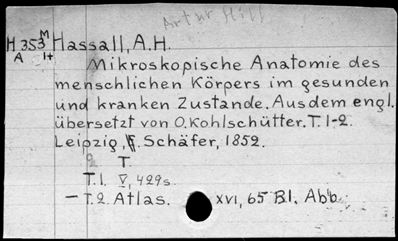 Artur Hill
H 353 M Hassall, A.H.
A 1+
Mikroskopische Anatomie des
menschlichen Körpers im gesunden
und kranken Zustande. Aus dem engl.
übersetzt von O. Kohlschütter. T. 1-2.
Leipzig, F. Schäfer, 1852.
2 T.
T.1. V, 429 s.
- T.2. Atlas. XVI, 65 Bl. Abb.